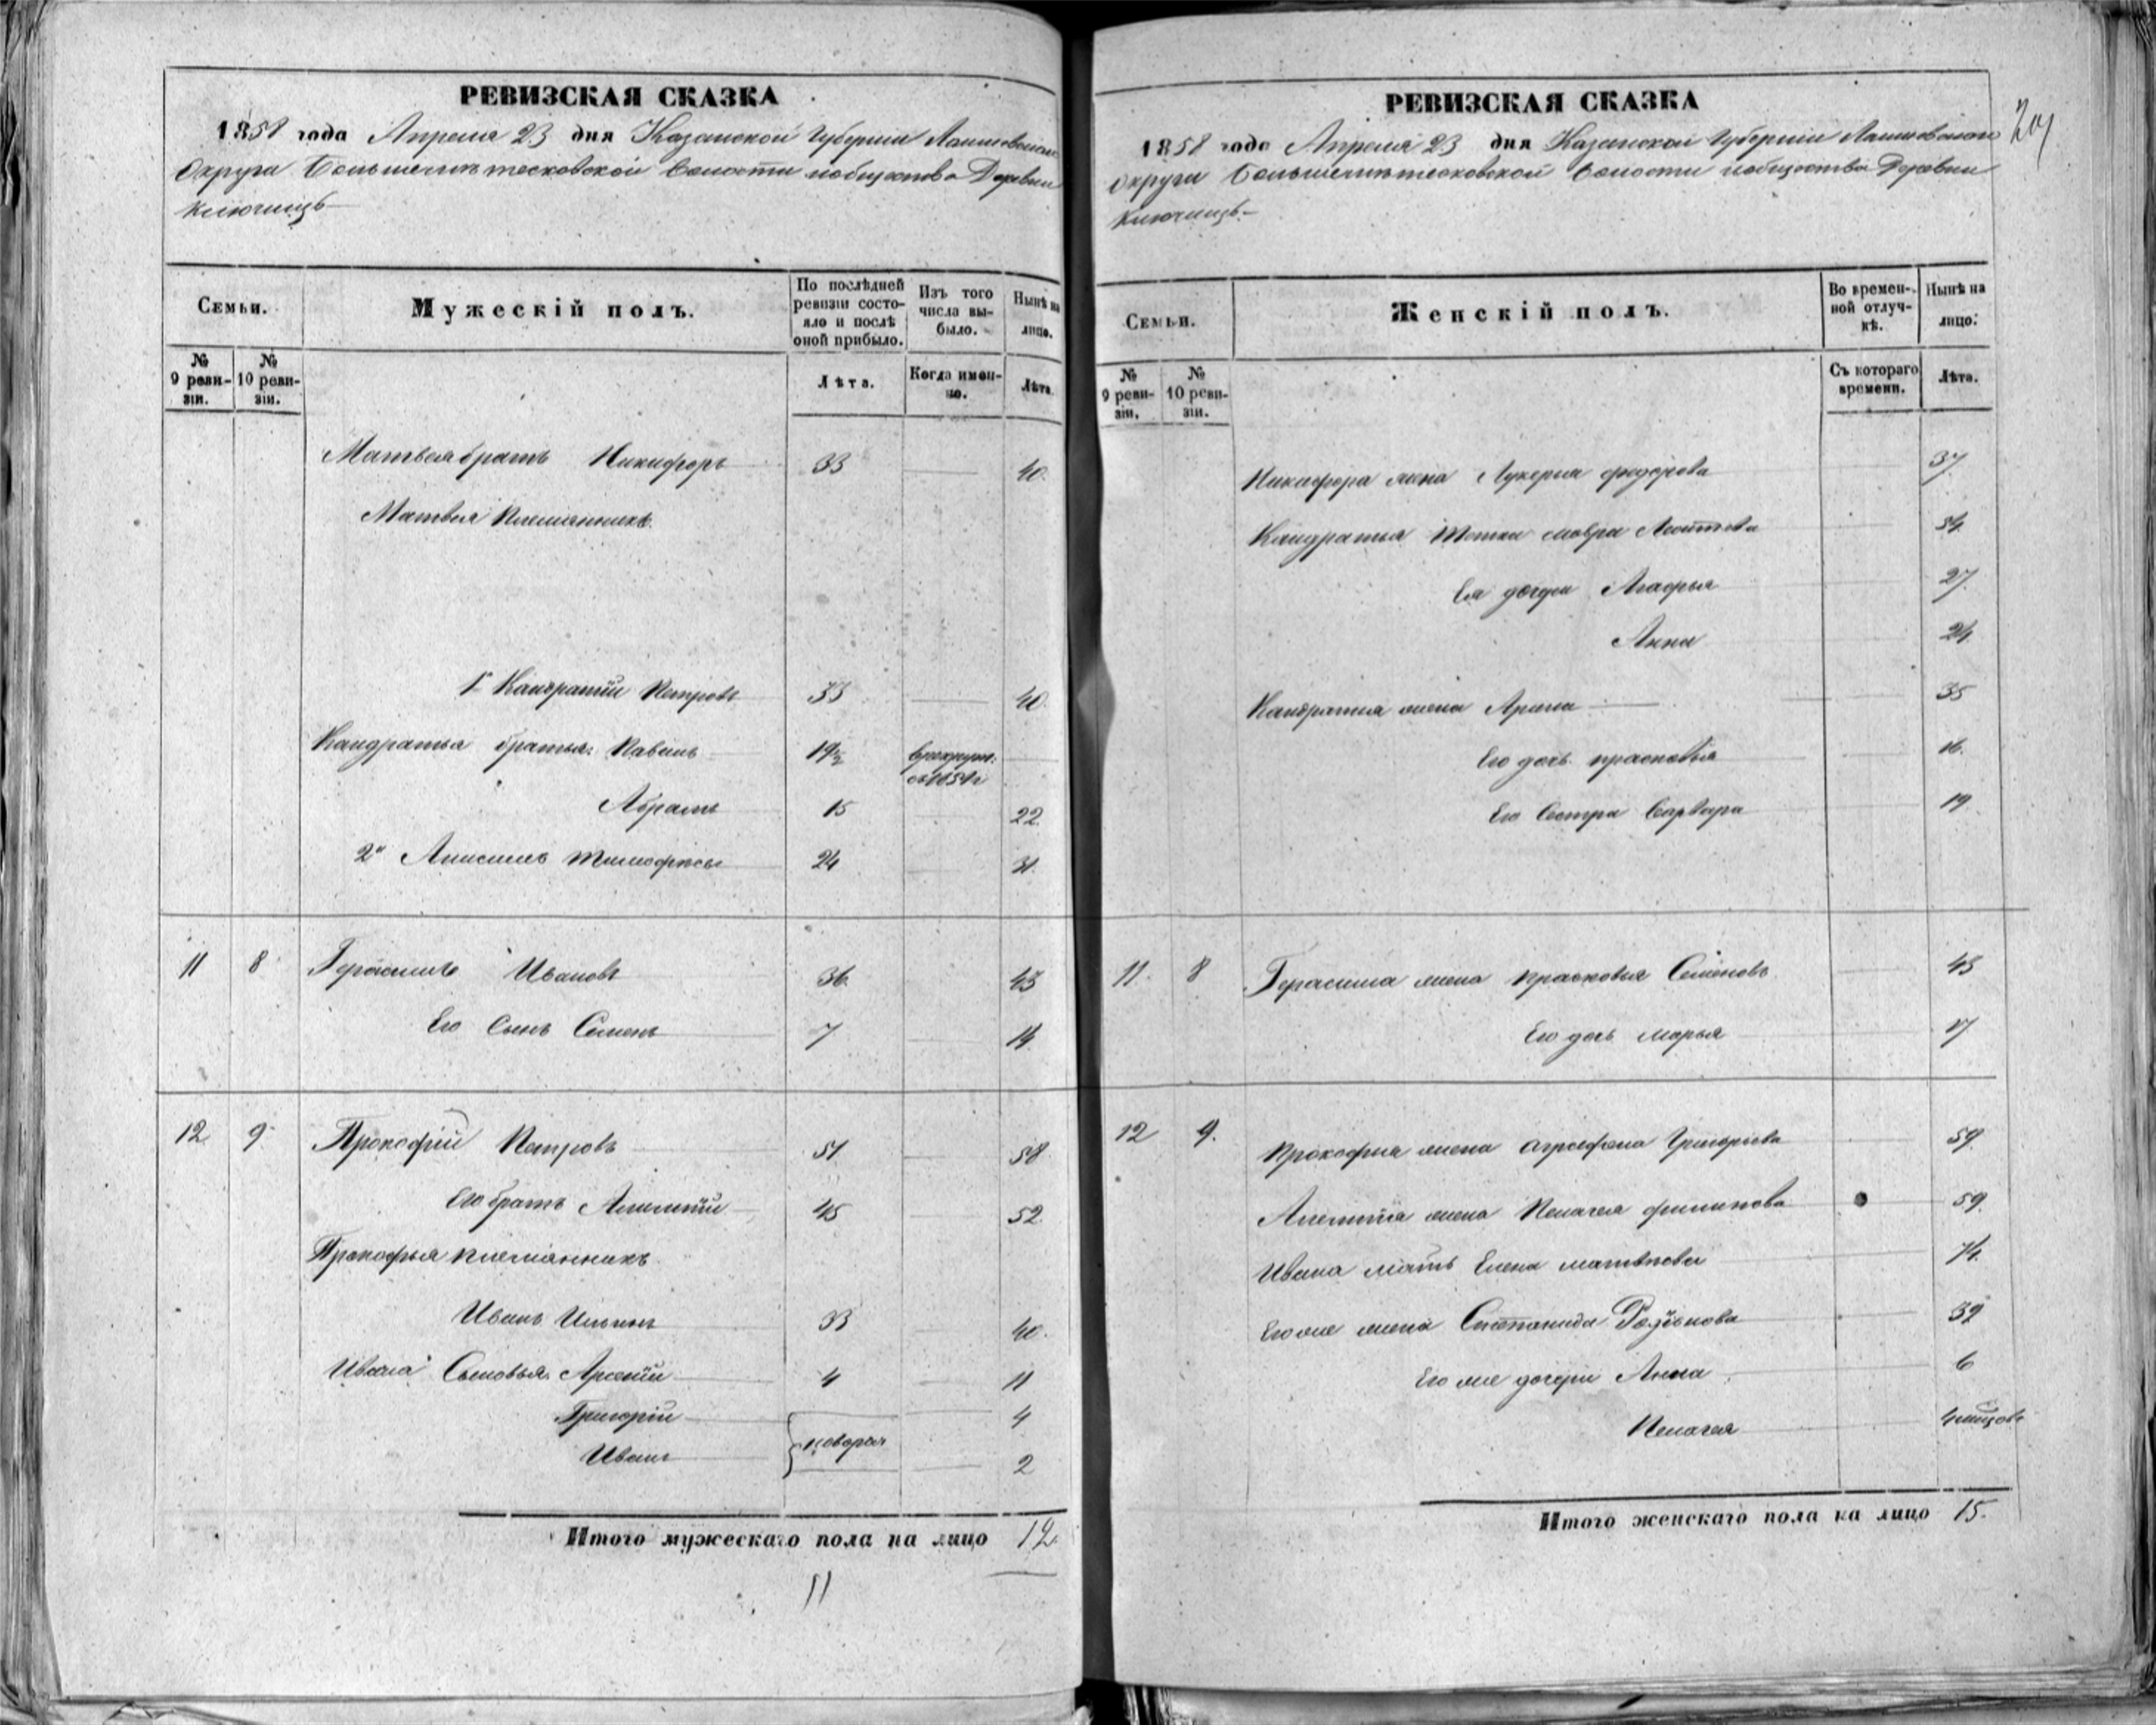 РЕВИЗСКАЯ СКАЗКА
1858 года Апреля 23 дня Казанской Губернии Лаишевскаго
Округа волости и общества Деревни
Ключищъ
Семьи.
Мужескій полъ.
По послѣдней ревизіи состояло и послѣ оной прибыло.
Изъ того числа выбыло.
Нынѣ на лицо.
№ 9 ревизіи.
№ 10 ревизіи.
Лѣта.
Когда именно.
Лѣта.
Матвея братъ Никифоръ 33 40.
Матвея Племянники
1й Кандратій Петровъ 33 40
Кандратья братья: Павелъ 19½ въ рекрут. съ 1854 г
Абрамъ 15 22.
2й Анисимъ Тимофѣевъ 24 31.
11 8 Герасимъ Ивановъ 36. 43
Его Сынъ Семенъ 7 14
12 9 Прокофій Петровъ 51 58
Его братъ 45 52
Прокофья племянникъ
Иванъ Ильинъ 33 40.
Ивана Сыновья: Арсеній 4 11
Григорій 4
новорож
Иванъ 2
Итого мужескаго пола на лицо 12.
11
РЕВИЗСКАЯ СКАЗКА
1858 года Апреля 23 дня Казанской Губерніи Лаишевскаго
Округи волости и общества Деревни
Ключищъ
Семьи.
Женскій полъ.
Во временной отлучкѣ.
Нынѣ на лицо.
№ 9 ревизіи.
№ 10 ревизіи.
Съ котораго времени.
Лѣта.
Никифора жена Лукерья федорова 37.
Кандратья тетка мавра 54
Ея дочери Агафья 27.
Анна 24
Кандратья жена Арина 35
Его дочь прасковья 16.
Его Сестра Варвара 19
11. 8 Герасима жена прасковья Семенова 43
Его дочь марья 17
12 9. Прокофья жена аграфена Григорьева 59.
жена Пелагея филипова 59.
Ивана мать Елена матвѣева 74.
Его же жена Степанида Родионова 39
Его же дочери Анна 6
Пелагея 4 месецовъ
Итого женскаго пола на лицо 15.